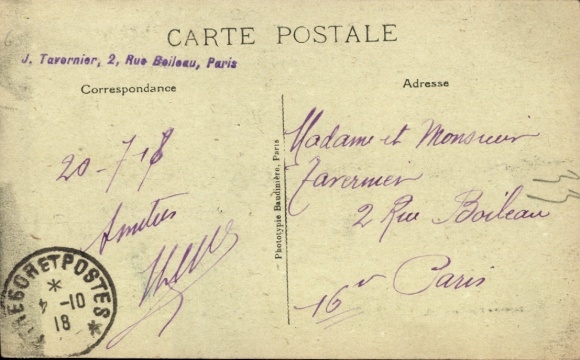 CARTE POSTALE
J. Tavernier, 2, Rue Boileau, Paris
Correspondance
20-7-18
Amitiés
TRESOR ET POSTES
-10
18
Phototypie Baudinière, Paris
Adresse
Madame et Monsieur
Tavernier
2 Rue Boileau
16e Paris